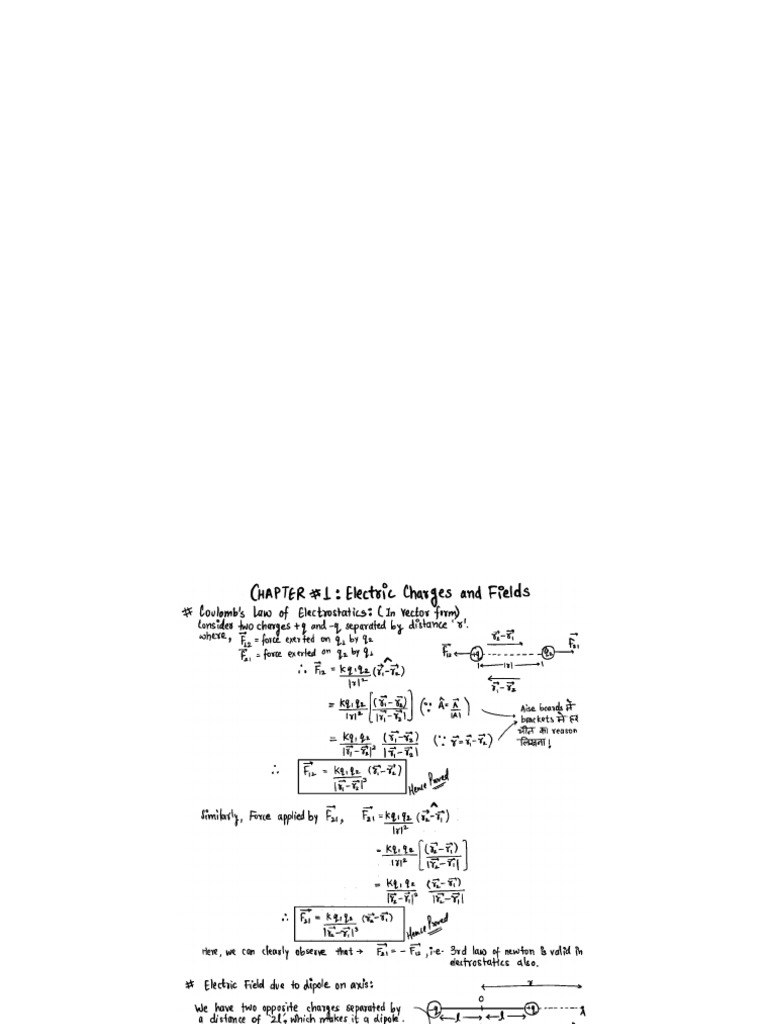 CHAPTER #1: Electric Charges and Fields
# Coulomb's Law of Electrostatics: (In vector form)
Consider two charges +q and -q separated by distance 'r'.
where, F⃗₁₂ = force exerted on q₁ by q₂
F⃗₂₁ = force exerted on q₂ by q₁
r⃗₂-r⃗₁
F⃗₁₂ +q q₂ F⃗₂₁
|r|
r⃗₁-r⃗₂
∴ F⃗₁₂ = kq₁q₂/|r|² (r⃗₁-r⃗₂)^
= kq₁q₂/|r|² [(r⃗₁-r⃗₂)/|r⃗₁-r⃗₂|] (∵ Â = A⃗/|A|)
= kq₁q₂/|r⃗₁-r⃗₂|² (r⃗₁-r⃗₂)/|r⃗₁-r⃗₂| (∵ r⃗ = r⃗₁-r⃗₂)
Aise boards में
brackets में हर
चीज का reason
लिखना!
∴ F⃗₁₂ = kq₁q₂/|r⃗₁-r⃗₂|³ (r⃗₁-r⃗₂) Hence Proved
Similarly, Force applied by F⃗₂₁, F⃗₂₁ = kq₁q₂/|r|² (r⃗₂-r⃗₁)^
= kq₁q₂/|r|² [(r⃗₂-r⃗₁)/|r⃗₂-r⃗₁|]
= kq₁q₂/|r⃗₂-r⃗₁|² (r⃗₂-r⃗₁)/|r⃗₂-r⃗₁|
∴ F⃗₂₁ = kq₁q₂/|r⃗₂-r⃗₁|³ (r⃗₂-r⃗₁) Hence Proved
Here, we can clearly observe that → F⃗₂₁ = - F⃗₁₂, i.e. 3rd law of newton is valid in
electrostatics also.
# Electric Field due to dipole on axis:
r
We have two opposite charges separated by
a distance of '2l', which makes it a dipole.
O
-q l l +q